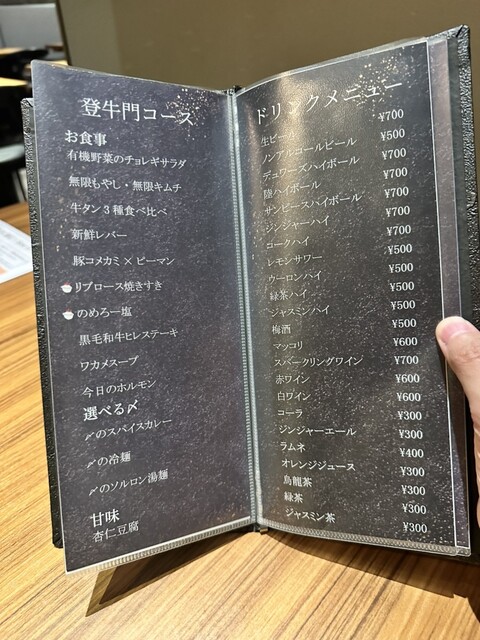 登牛門コース
お食事
有機野菜のチョレギサラダ
無限もやし・無限キムチ
牛タン3種食べ比べ
新鮮レバー
豚コメカミ×ピーマン
リブロース焼きすき
のめろー塩
黒毛和牛ヒレステーキ
ワカメスープ
今日のホルモン
選べる〆
〆のスパイスカレー
〆の冷麺
〆のソルロン湯麺
甘味
杏仁豆腐
ドリンクメニュー
生ビール ¥700
ノンアルコールビール ¥500
デュワーズハイボール ¥700
陸ハイボール ¥700
サンピースハイボール ¥700
ジンジャーハイ ¥700
コークハイ ¥700
レモンサワー ¥500
ウーロンハイ ¥500
緑茶ハイ ¥500
ジャスミンハイ ¥500
梅酒 ¥500
マッコリ ¥500
スパークリングワイン ¥700
赤ワイン ¥600
白ワイン ¥600
コーラ ¥300
ジンジャーエール ¥300
ラムネ ¥400
オレンジジュース ¥300
烏龍茶 ¥300
緑茶 ¥300
ジャスミン茶 ¥300